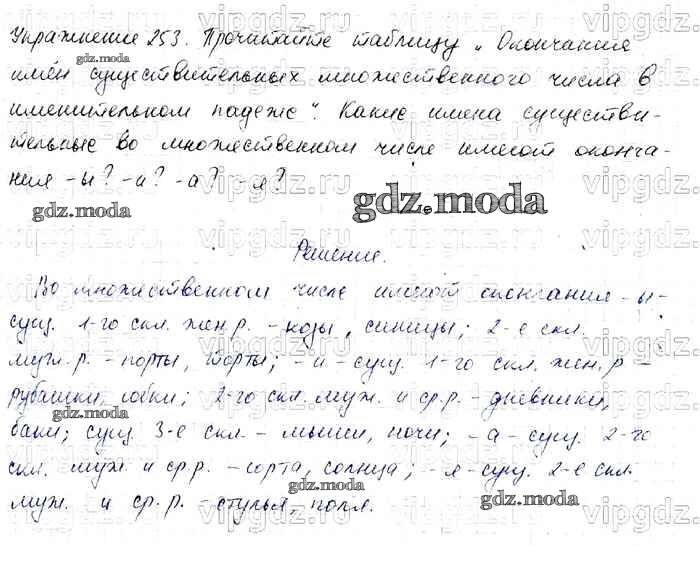 Упражнение 253. Прочитайте таблицу „Окончания
имён существительных множественного числа в
именительном падеже". Какие имена существи-
тельные во множественном числе имеют оконча-
ния -ы? -и? -а? -я?
gdz.moda
gdz.moda
gdz.moda
Решение.
Во множественном числе имеют окончания -ы-
сущ. 1-го скл. жен.р. - козы, синицы; 2-е скл.
муж.р. - порты, торты; -и-сущ. 1-го скл. жен.р -
рубашки, юбки; 2-го скл. муж. и ср.р. - дневники,
gdz.moda
баки; сущ. 3-е скл. - мыши, ночи; -а-сущ. 2-го
скл. муж. и ср.р. - сорта, солнца; -я-сущ. 2-е скл.
gdz.moda
муж. и ср.р. - стулья, поля.
gdz.moda
vipgdz.ru